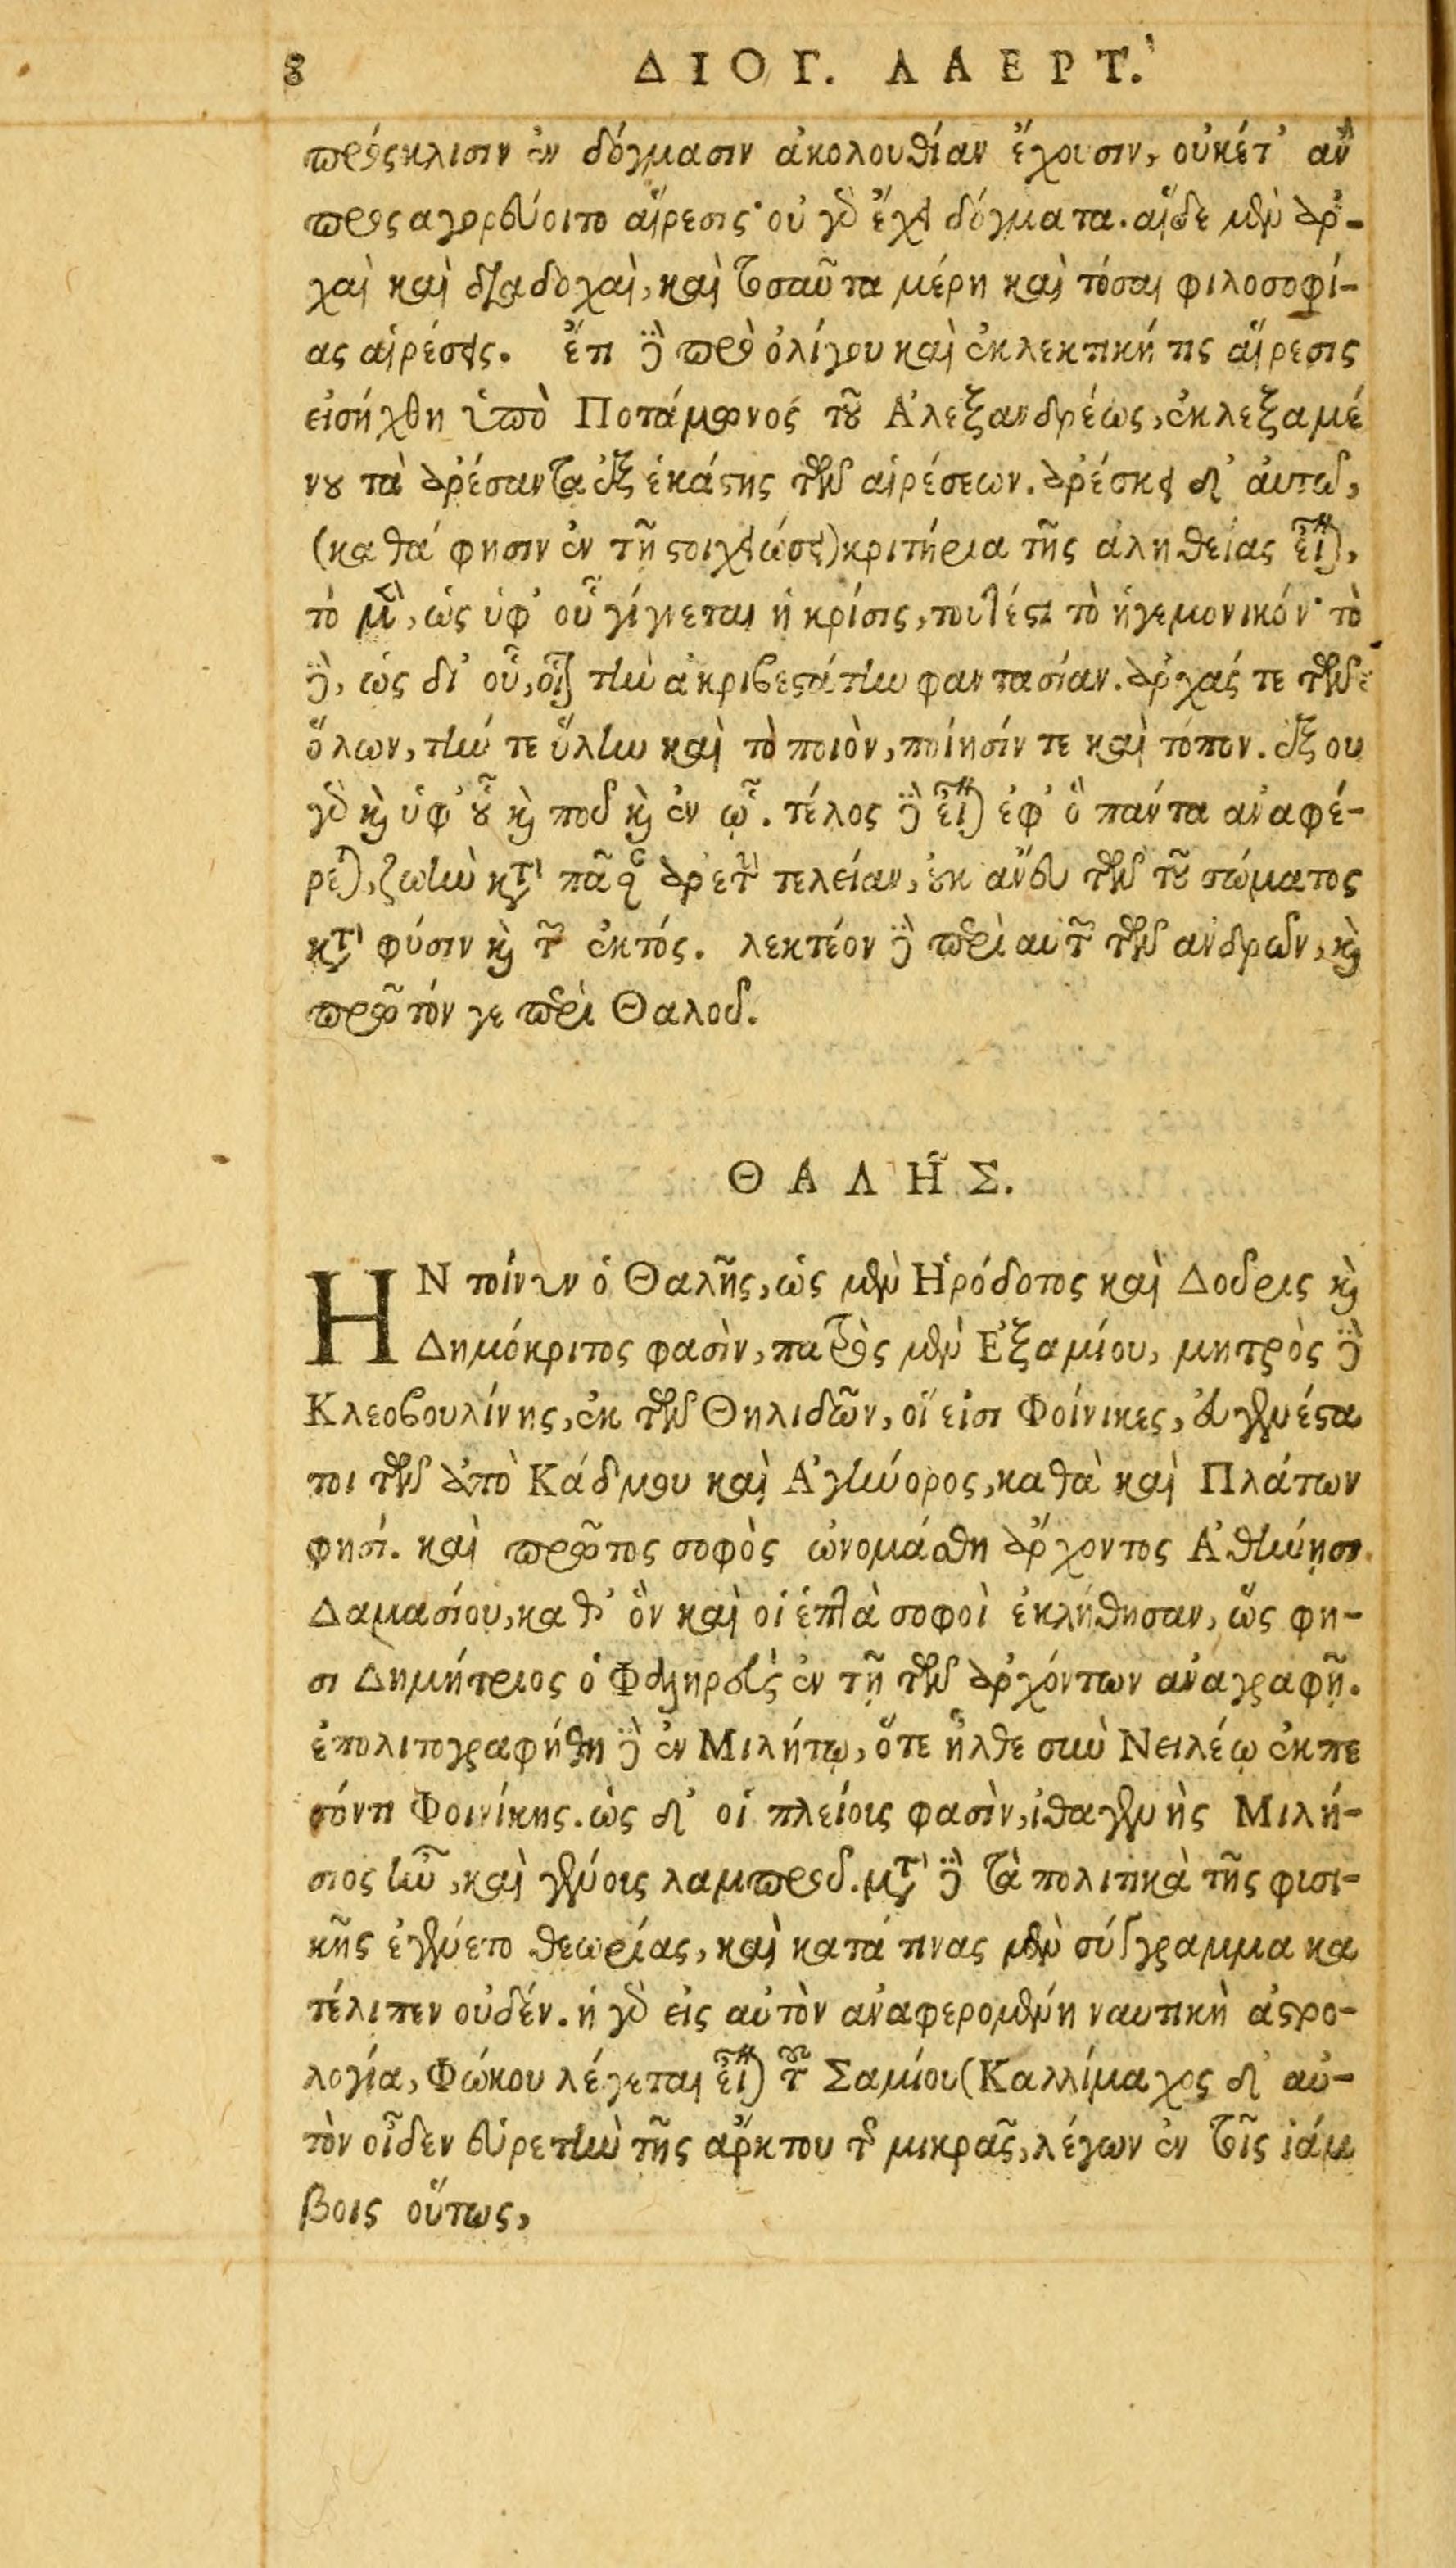 8 ΔΙΟΓ. ΛΑΕΡΤ.
πρόςκλισιν ἐν δόγμασιν ἀκολουθίαν ἔχουσιν, οὐκέτ' ἂν
προςαγορεύοιτο αἵρεσις· οὐ γὸ ἔχει δόγματα. αἵδε μὲν ἀρ-
χαὶ καὶ διαδοχαὶ, καὶ τοσαῦτα μέρη καὶ τόσαι φιλοσοφί-
ας αἱρέσεις. ἔτι δὲ πρὸ ὀλίγου καὶ ἐκλεκτική τις αἵρεσις
εἰσήχθη ὑπὸ Ποτάμωνος τοῦ Ἀλεξανδρέως, ἐκλεξαμέ
νου τὰ ἀρέσαντα ἐξ ἑκάστης τῶν αἱρέσεων. ἀρέσκει δ' αὐτῷ,
(καθά φησιν ἐν τῇ στοιχειώσει) κριτήρια τῆς ἀληθείας εἶναι,
τὸ μὲν, ὡς ὑφ' οὗ γίγνεται ἡ κρίσις, τουτέστι τὸ ἡγεμονικόν· τὸ
δὲ, ὡς δι' οὗ, οἷον τὴν ἀκριβεστάτην φαντασίαν. ἀρχάς τε τῶν
ὅλων, τήν τε ὕλην καὶ τὸ ποιὸν, ποίησίν τε καὶ τόπον. ἐξ οὗ
γὸ καὶ ὑφ' οὗ καὶ ποῦ καὶ ἐν ᾧ. τέλος δὲ εἶναι ἐφ' ὃ πάντα ἀναφέ-
ρεται, ζωὴν κατὰ πᾶσαν ἀρετὴν τελείαν, οὐκ ἄνευ τῶν τοῦ σώματος
κατὰ φύσιν καὶ τῶν ἐκτός. λεκτέον δὲ περὶ αὐτῶν τῶν ἀνδρῶν, καὶ
πρῶτόν γε περὶ Θαλοῦ.
ΘΑΛΗ͂Σ.
ΗΝ τοίνυν ὁ Θαλῆς, ὡς μὲν Ἡρόδοτος καὶ Δοῦρις καὶ
Δημόκριτος φασὶν, πατρὸς μὲν Ἐξαμίου, μητρὸς δὲ
Κλεοβουλίνης, ἐκ τῶν Θηλιδῶν, οἵ εἰσι Φοίνικες, εὐγενέστα
τοι τῶν ἀπὸ Κάδμου καὶ Ἀγήνορος, καθὰ καὶ Πλάτων
φησί. καὶ πρῶτος σοφὸς ὠνομάσθη ἄρχοντος Ἀθήνησι
Δαμασίου, καθ' ὃν καὶ οἱ ἑπτὰ σοφοὶ ἐκλήθησαν, ὥς φη-
σι Δημήτριος ὁ Φαληρεὺς ἐν τῇ τῶν ἀρχόντων ἀναγραφῇ.
ἐπολιτογραφήθη δὲ ἐν Μιλήτῳ, ὅτε ἦλθε σὺν Νειλέῳ ἐκπε
σόντι Φοινίκης. ὡς δ' οἱ πλείους φασὶν, ἰθαγενὴς Μιλή-
σιος ἦν, καὶ γένους λαμπροῦ. μετὰ δὲ τὰ πολιτικὰ τῆς φυσι-
κῆς ἐγένετο θεωρίας, καὶ κατά τινας μὲν σύγγραμμα κα
τέλιπεν οὐδέν. ἡ γὸ εἰς αὐτὸν ἀναφερομένη ναυτικὴ ἀστρο-
λογία, Φώκου λέγεται εἶναι τοῦ Σαμίου (Καλλίμαχος δ' αὐ-
τὸν οἶδεν εὑρετὴν τῆς ἄρκτου τῆς μικρᾶς, λέγων ἐν τοῖς ἰάμ
βοις οὕτως,